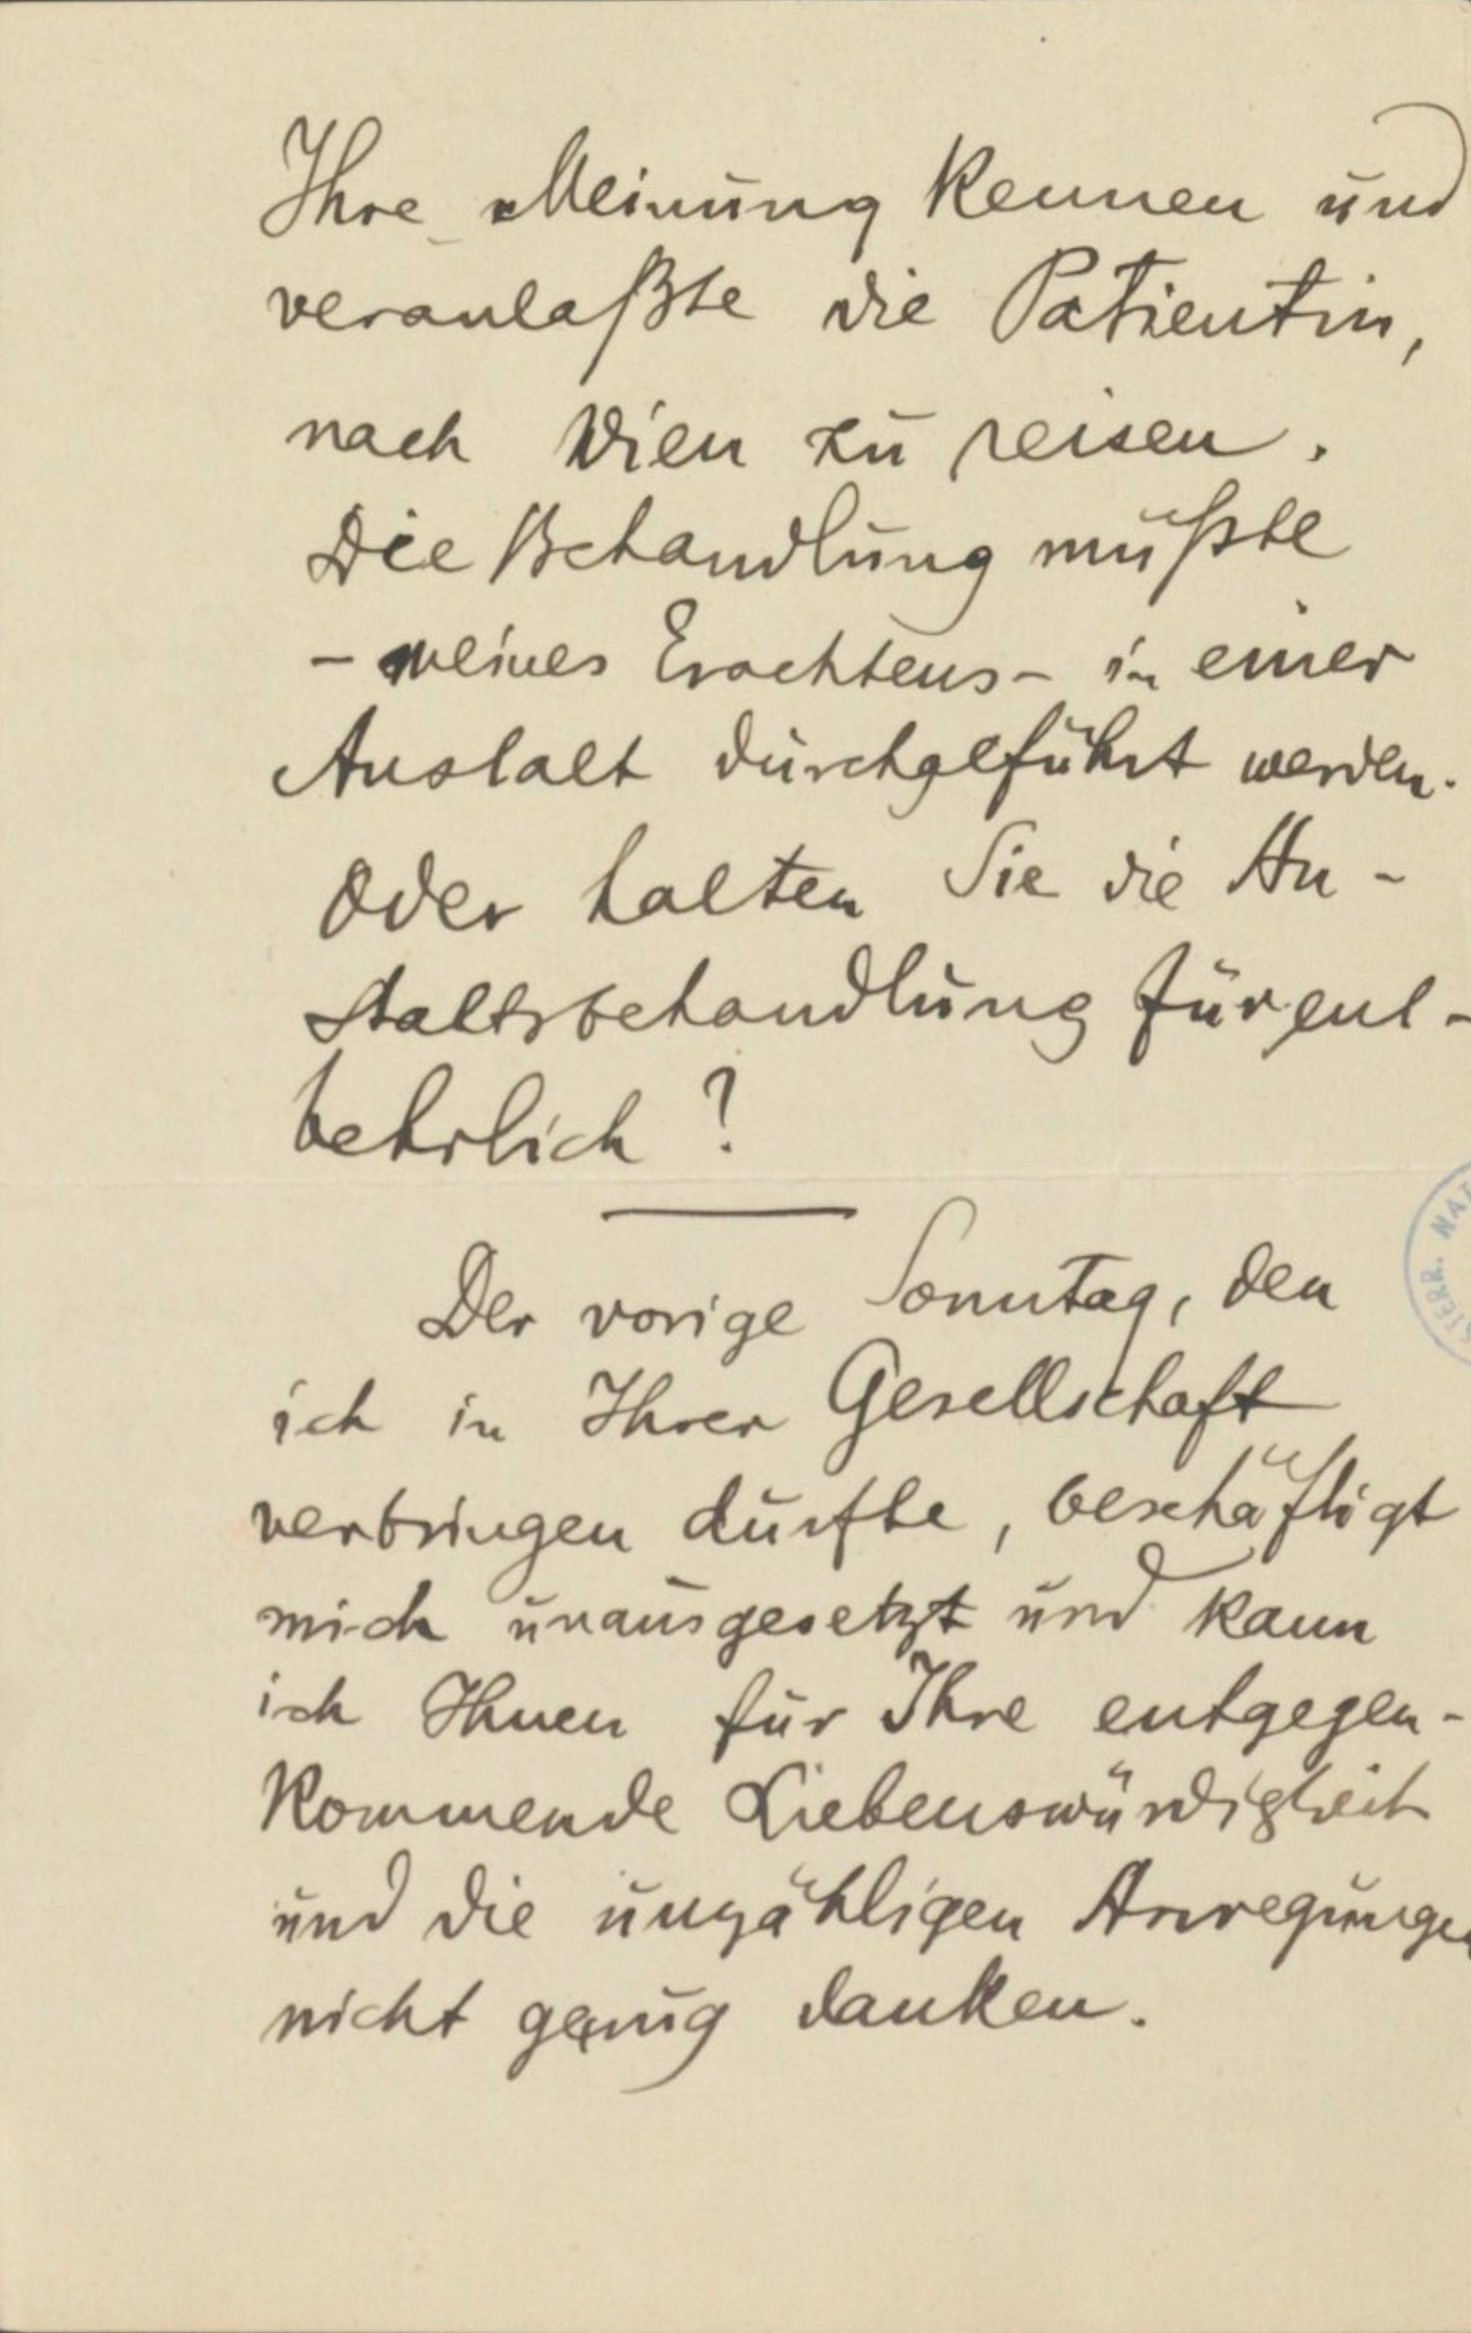 Ihre Meinung kennen und
veranlaßte die Patientin,
nach Wien zu reisen.
Die Behandlung müßte
– meines Erachtens – in einer
Anstalt durchgeführt werden.
Oder halten Sie die An-
staltsbehandlung für ent-
behrlich?
Der vorige Sonntag, den
ich in Ihrer Gesellschaft
verbringen durfte, beschäftigt
mich unausgesetzt und kann
ich Ihnen für Ihre entgegen-
kommende Liebenswürdigkeit
und die unzähligen Anregungen
nicht genug danken.